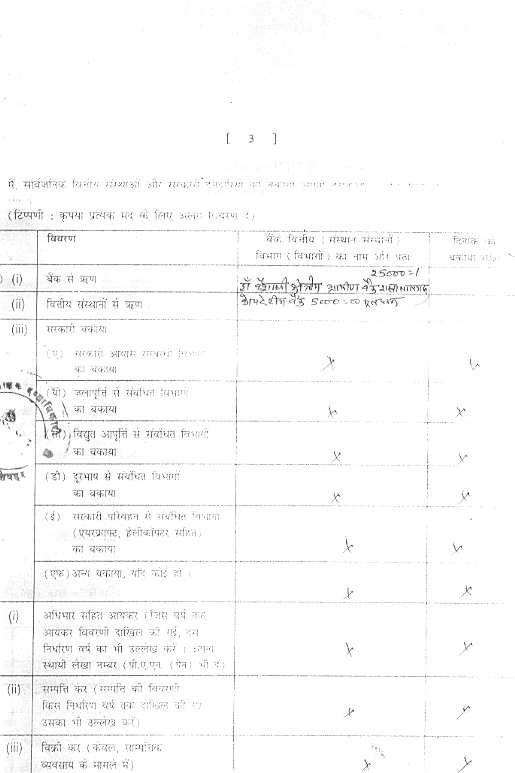 [ 3 ]
में, सार्वजनिक वित्तीय संस्थाओं और सरकारी
(टिप्पणी : कृपया प्रत्येक मद के लिए अलग विवरण दें)
विवरण
बैंक वित्तीय (संस्थान संस्थानों)
विभाग (विभागों) का नाम और पता
दिनांक को
बकाया राशि
(i) बैंक से ऋण
25000=/
ग्रामीण बैंक
(ii) वित्तीय संस्थानों से ऋण
बैंक 5000=00
(iii) सरकारी बकाया
(ए) सरकारी आवास सम्बन्धी विभागों
का बकाया
X
(बी) जलापूर्ति से संबंधित विभागों
का बकाया
X X
(सी) विद्युत आपूर्ति से संबंधित विभागों
का बकाया
X X
(डी) दूरभाष से संबंधित विभागों
का बकाया
X X
(ई) सरकारी परिवहन से संबंधित विभागों
(एयरक्राफ्ट, हेलीकॉप्टर सहित)
का बकाया
X X
(एफ) अन्य बकाया, यदि कोई हो ।
X X
(i) अधिभार सहित आयकर (जिस वर्ष तक
आयकर विवरणी दाखिल की गई, उस
निर्धारण वर्ष का भी उल्लेख करें । अपना
स्थायी लेखा नम्बर (पी.ए.एन. (पेन) भी दें)
X X
(ii) सम्पत्ति कर (सम्पत्ति की विवरणी
किस निर्धारण वर्ष तक दाखिल की गई
उसका भी उल्लेख करें)
X X
(iii) बिक्री कर (केवल, साम्पत्तिक
व्यवसाय के मामले में)
X X